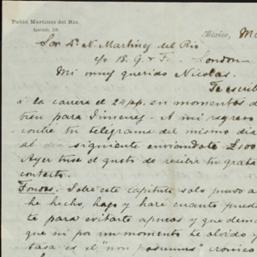 Pablo Martinez del Rio.
México, 
Sor Dn N. Martinez del Rio
c/o B. G. & F. London
Mi muy querido Nicolas.
Te escribí
á la carrera el 24 pp. en momentos de
tren para Jimenez. A mi regreso
contré tu telegrama del mismo día
al siguiente enviandole £100
Ayer tuve el gusto de recibir tu grata
contesto.
Fondos. Sobre este capitulo solo puedo
he hecho, hago y haré cuanto pueda
te para evitarte apuros y que
que ni por un momento te olvido y
tasa es el "non possumus" cronico